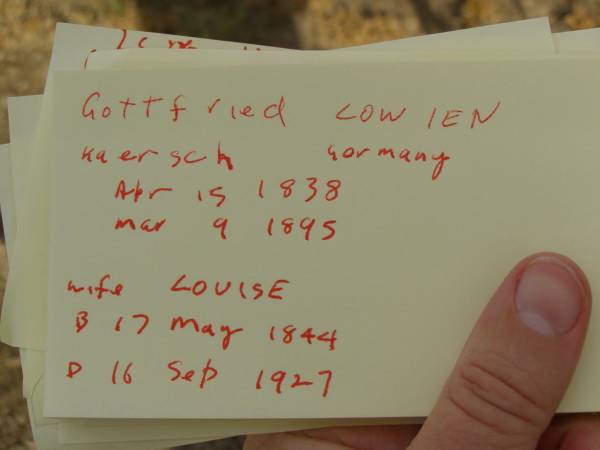 Gottfried LOWIEN
Kaersch Germany
Apr 15 1838
Mar 9 1895
wife LOUISE
B 17 May 1844
D 16 Sep 1927